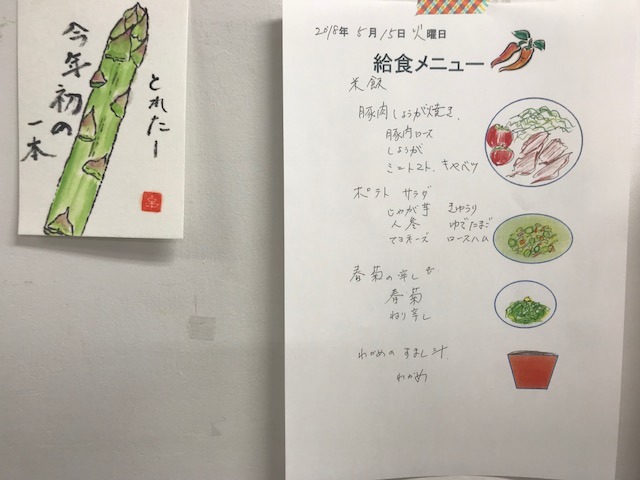 とれたー
今年初の
一本
2018年 5月 15日 火曜日
給食メニュー
米飯
豚肉しょうが焼き
豚肉ロース
しょうが
ミニトマト、キャベツ
ポテト サラダ
じゃが芋 きゅうり
人参 ゆでたまご
マヨネーズ ロースハム
春菊の辛し
春菊
ねり辛し
わかめのすまし汁
わかめ